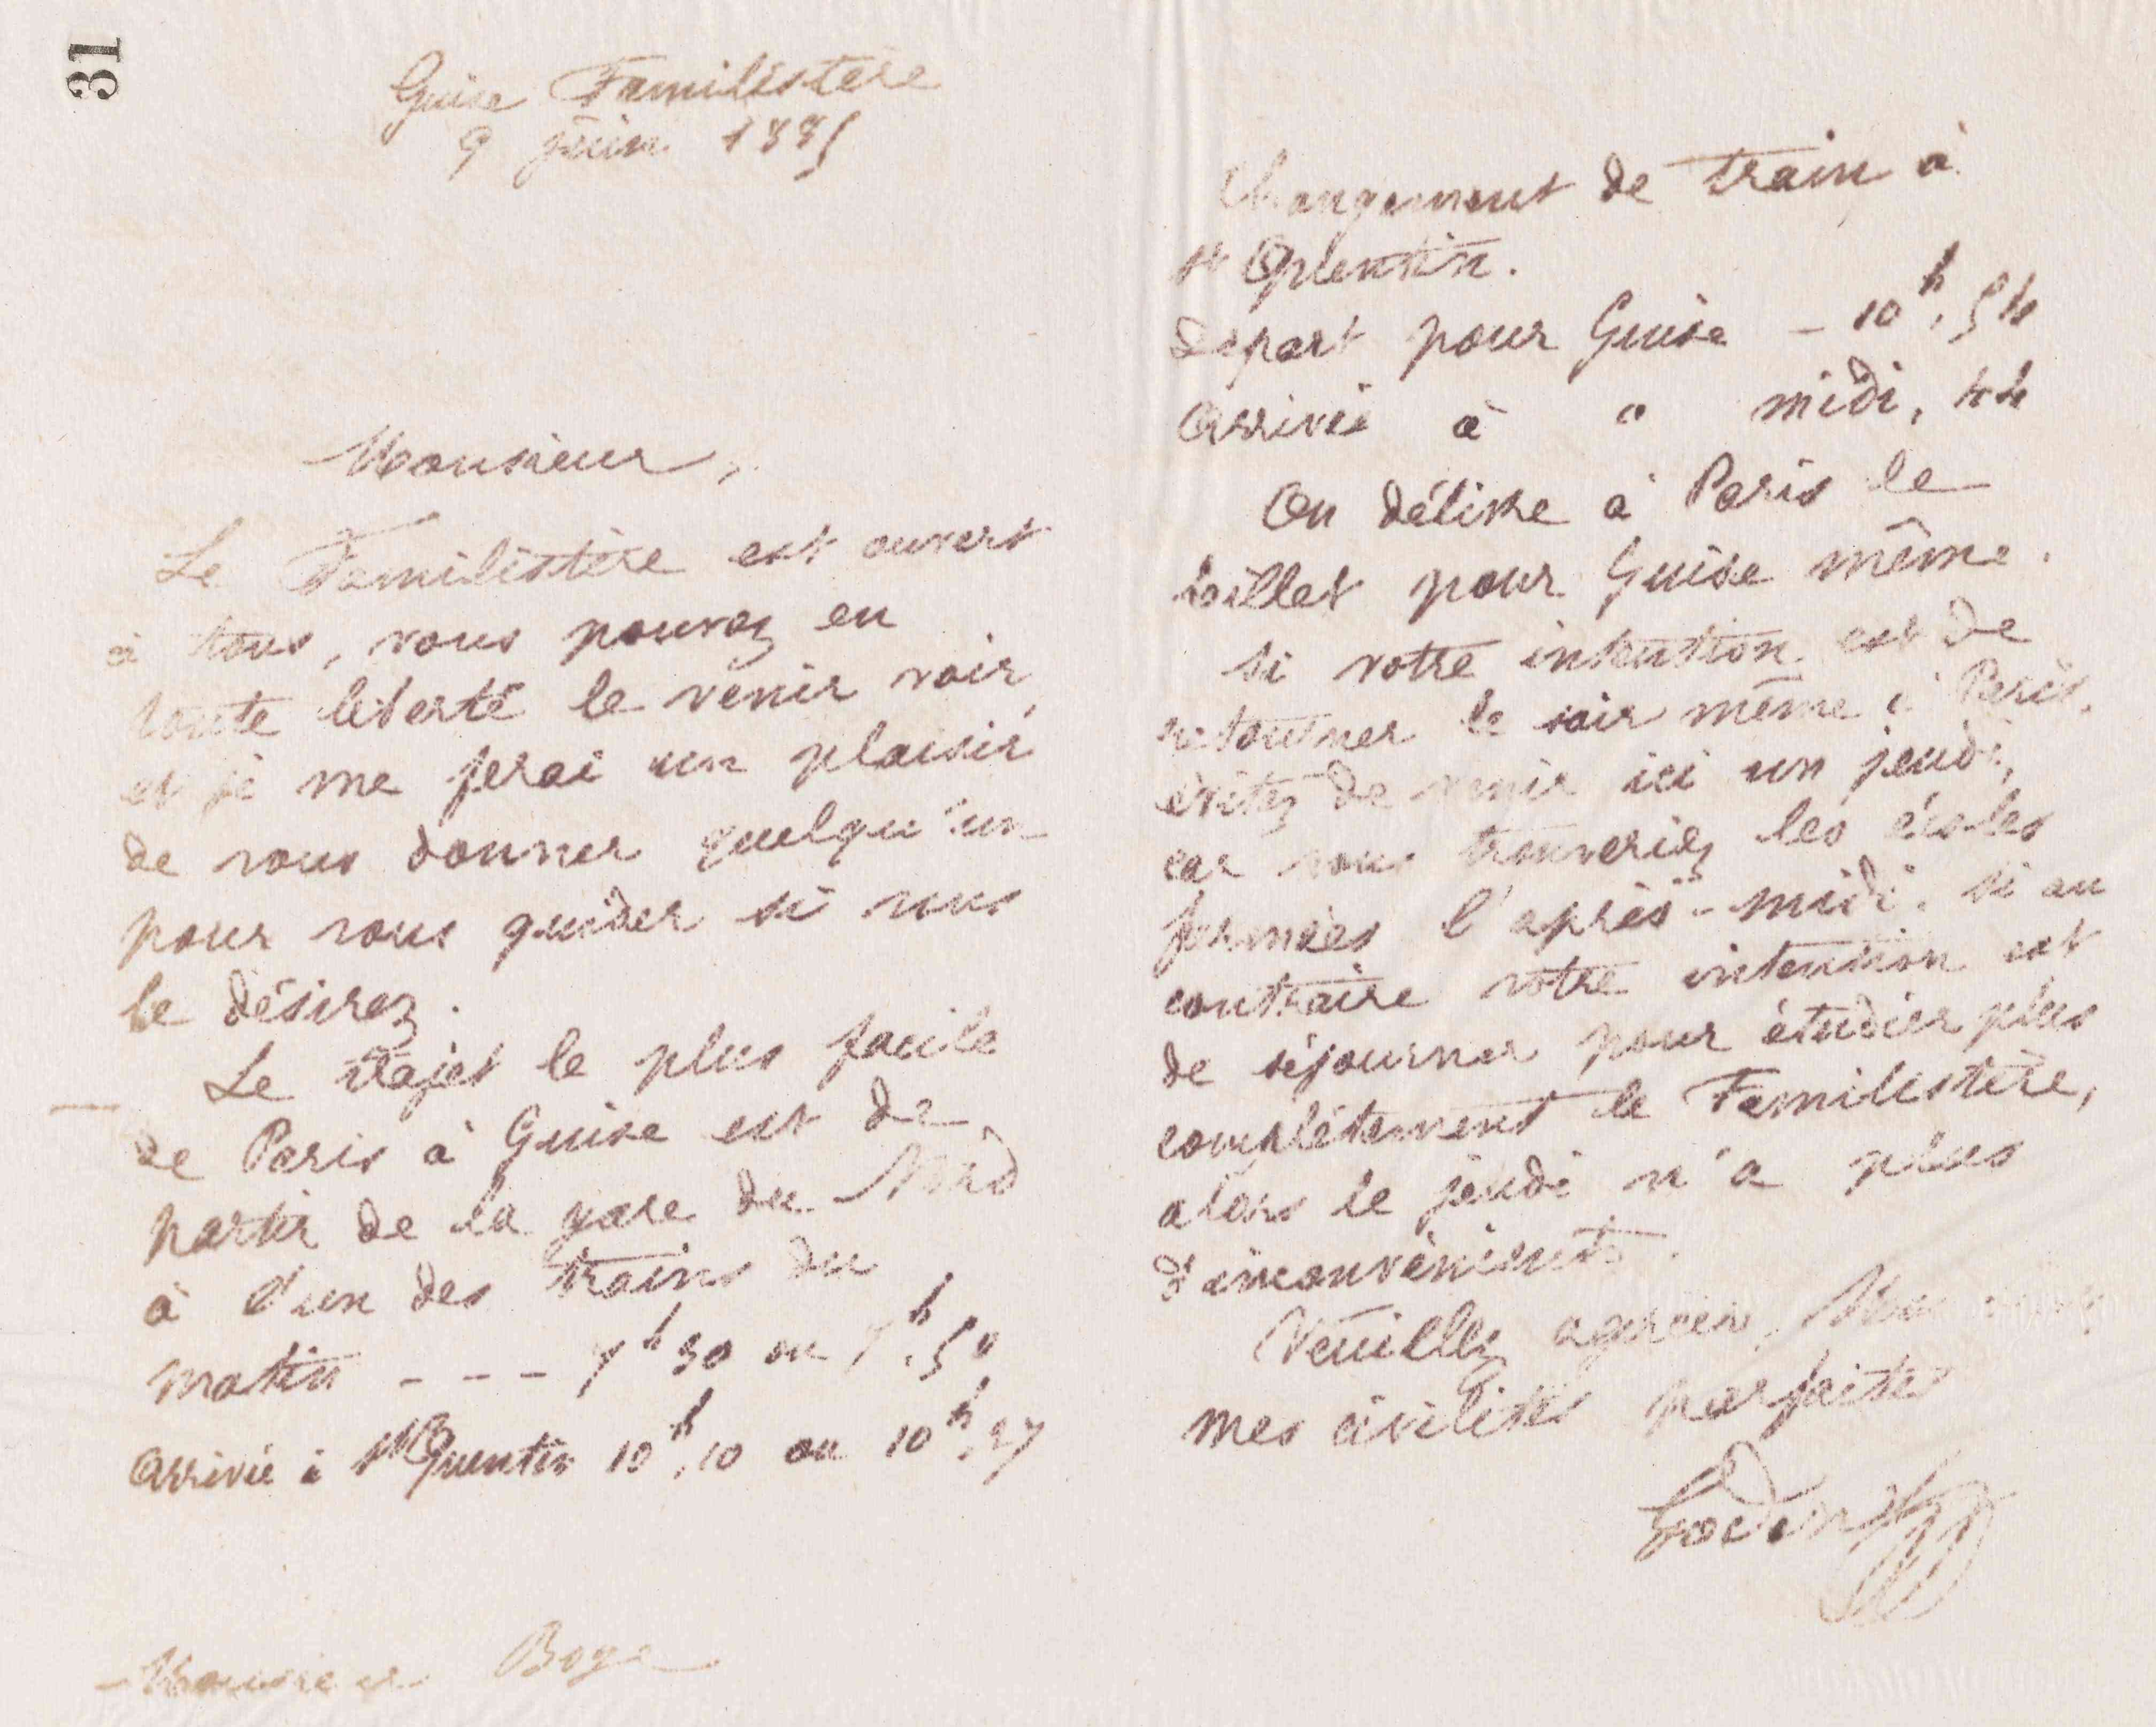 31
Guise Familistère
9 juin 1885
Monsieur,
Le Familistère est ouvert
à tous, vous pouvez en
toute liberté le venir voir,
et je me ferai un plaisir
de vous donner quelqu'un
pour vous guider si vous
le désirez.
Le trajet le plus facile
de Paris à Guise est de
partir de la gare du Nord
à l'un des trains du
matin - - - 7h 30 ou 7h,50
Arrivée à St Quentin 10h,10 ou 10h,27
Monsieur Boge
Changement de train à
St Quentin.
départ pour Guise - 10h,54
Arrivée à " midi, 44
On délivre à Paris le
billet pour Guise même.
Si votre intention est de
retourner le soir même à Paris,
évitez de venir ici un jeudi,
car vous trouveriez les écoles
fermées l'après-midi. Si au
contraire votre intention est
de séjourner pour étudier plus
complètement le Familistère,
alors le jeudi n'a plus
d'inconvénients.
Veuillez agréer, Monsieur
mes civilités parfaites
Godin